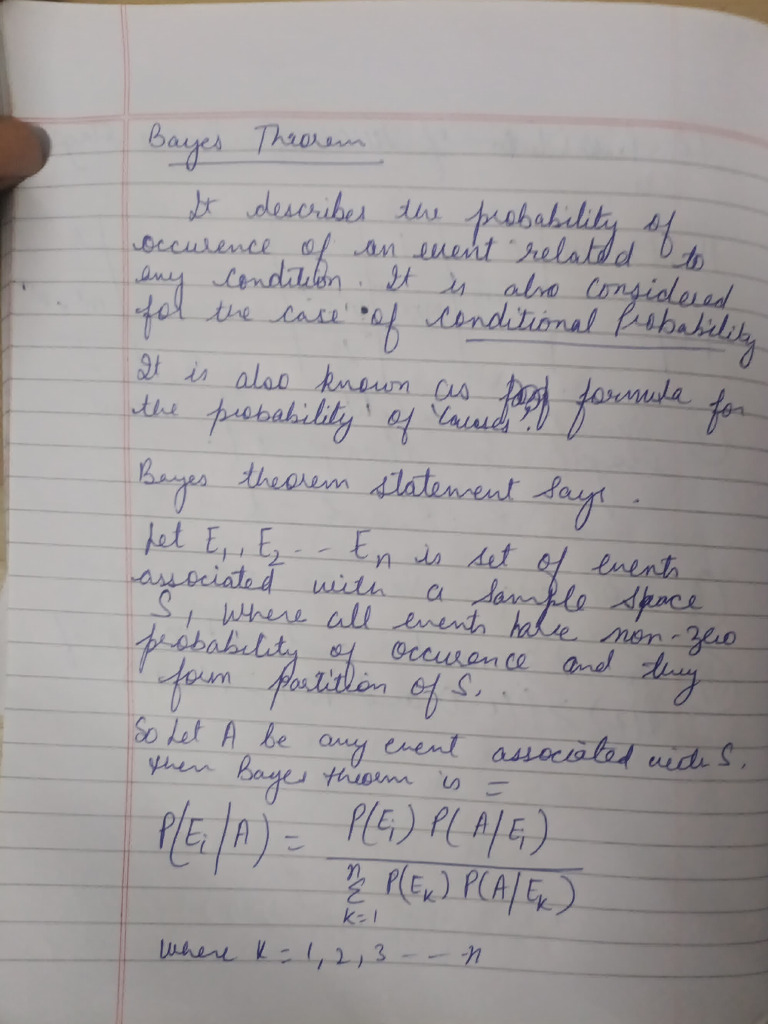 Bayes Theorem
It describes the probability of
occurence of an event related to
any condition. It is also considered
for the case of conditional Probability
It is also known as formula for
the probability of "causes".
Bayes theorem statement says.
Let E1, E2 -- En is set of events
associated with a sample space
S, where all events have non-zero
probability of occurence and they
form partition of S.
So Let A be any event associated with S.
then Bayes theorem is =
P(Ei/A) = P(Ei) P(A/Ei)
n
Σ P(Ek) P(A/Ek)
k=1
where K = 1, 2, 3 --- n